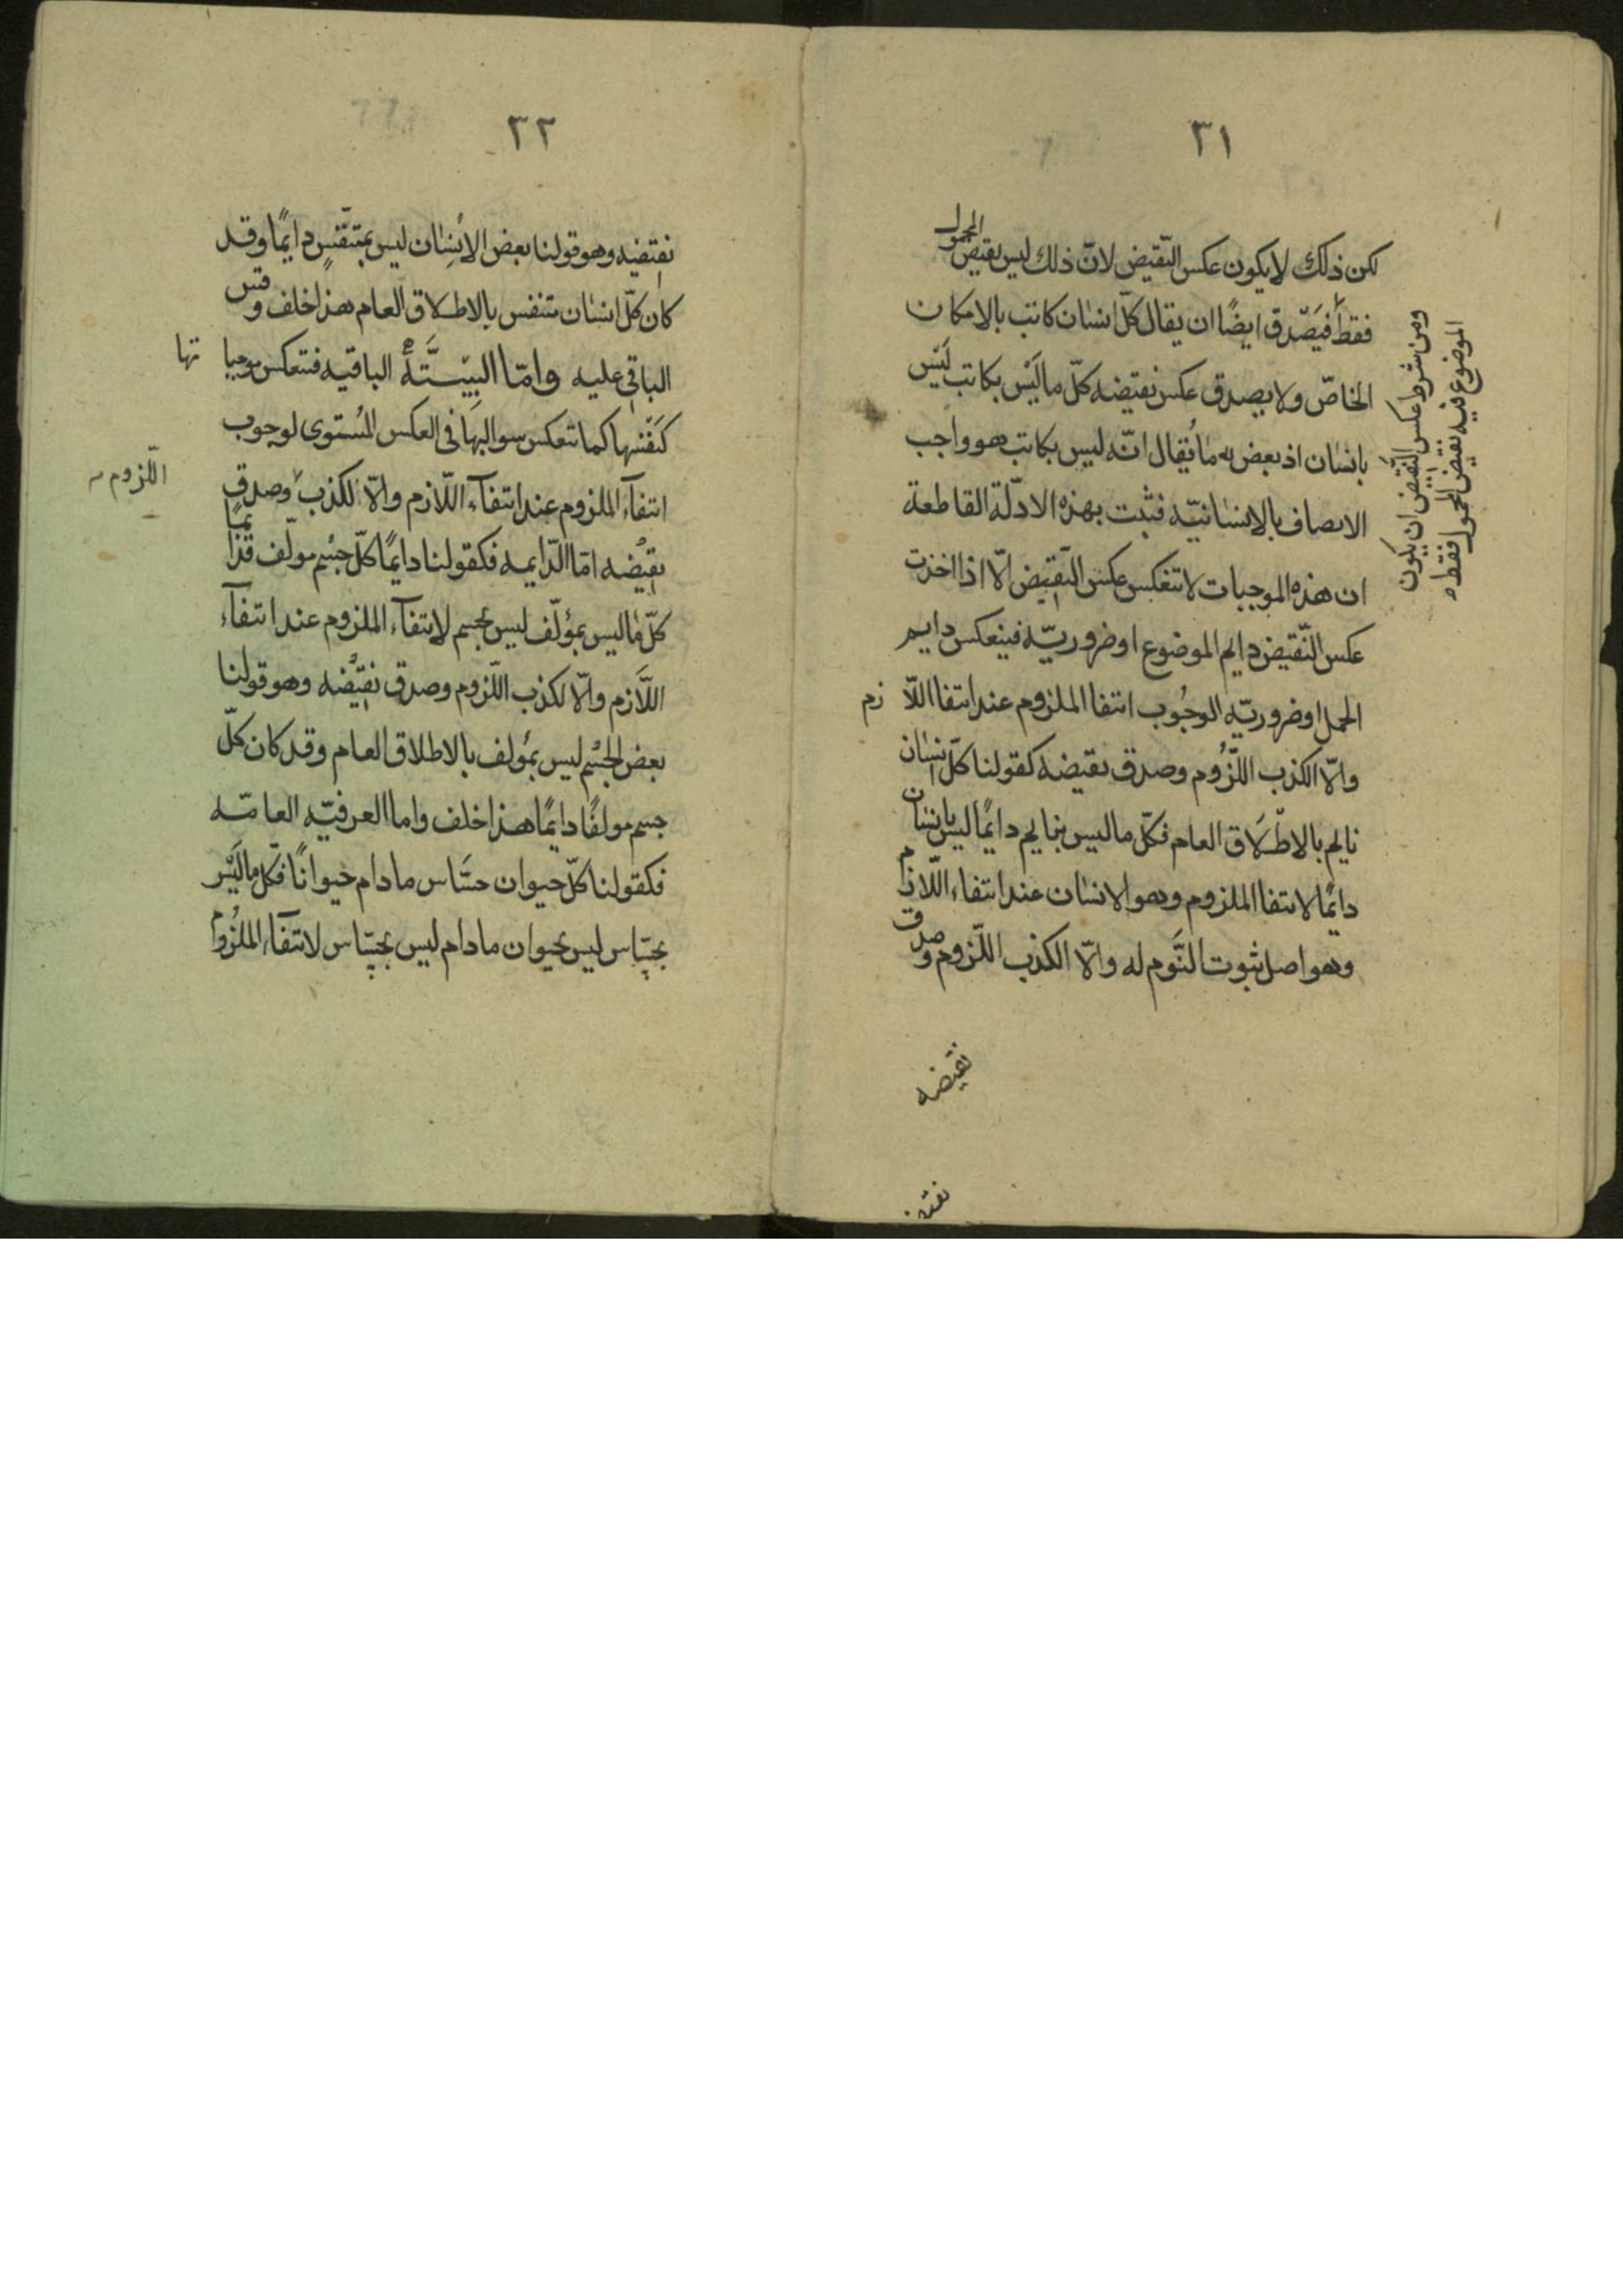 ٣١
لكن ذلك لا يكون عكس النّقيض لانّ ذلك ليس نقيض المحمول
فقط فيَصْدق ايضًا ان يقال كلّ انسان كاتب بالامكان
الخاصّ ولا يصدق عكس نقيضه كلّ ما ليْس بكاتب ليْس
بانسان اذ بعض ما يُقال انّه ليس بكاتب هو واجب
الاتصاف بالانسانيّه فثبت بهذه الادلّة القاطعة
ان هذه الموجبات لا تنعكس عكس النّقيض الّا اذا اخذت
عكس النّقيض دايم الموضوع او ضروريّه فينعكس دايم
الحمل او ضروريّه الوجُوب انتفا الملزوم عند انتفا اللّا زم
والّا الكذب اللّزُوم وصدق نقيضه كقولنا كلّ انسان
نايم بالاطْلاَق العام فكلّ ما ليس بنايم دايمًا ليس بانسان
دايمًا لانتفا الملزوم وهو الانسان عند انتفاء اللّازم
وهو اصل ثبوت النَّوم له والّا الكذب اللّزوم وصدق
نقيضه
ومن شرط عكس النّقيض ان يكون
الموضوع فيه نقيض المحمول فقط
٣٢
نقيضه وهو قولنا بعض الانسان ليس بمتنفّسٍ دايمًا وقد
كان كلّ انسان متنفس بالاطلاق العام هذا خلف وقس
الباقي عليه وامّا السِّتَّةُ الباقيه فتنعكس موجبا تها
كنفسها كما تنعكس سوالبهَا في العكس المُستوى لوجوب
انتفآء الملزوم عند انتفآء اللّازم والّا لكذب اللّزوم وصدق
نقيضه امّا الدّايمه فكقولنا دايمًا كلّ جسْم مولّف فدايمًا
كلّ ما ليس بمؤلّف ليس بجسم لانتفآء الملزوم عند انتفآء
اللَّازم والّا لكذب اللّزوم وصدق نقيضه وهو قولنا
بعض الجسْم ليس بمُولف بالاطلاق العام وقد كان كلّ
جسم مولفًا دايمًا هذا خلف واما العرفيّه العامّه
فكقولنا كلّ حيوان حسّاس ما دام حيوانًا فكل ما ليْس
بحسّاس ليس بحيوان ما دام ليس بحسّاس لانتفآء الملزُوم